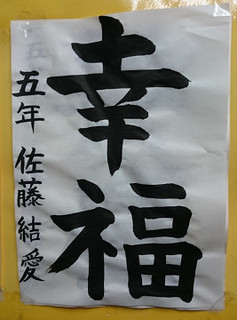 幸福
五年 佐藤結愛